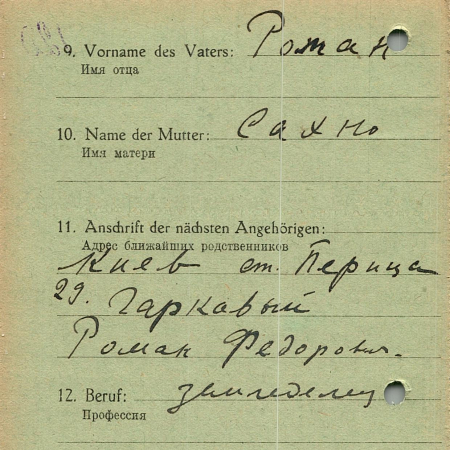 9. Vorname des Vaters: Роман
Имя отца
10. Name der Mutter: Сахно
Имя матери
11. Anschrift der nächsten Angehörigen:
Адрес ближайших родственников
Киев ст. Перица
29. Гаркавый
Роман Федорович.
12. Beruf: земледелец
Профессия